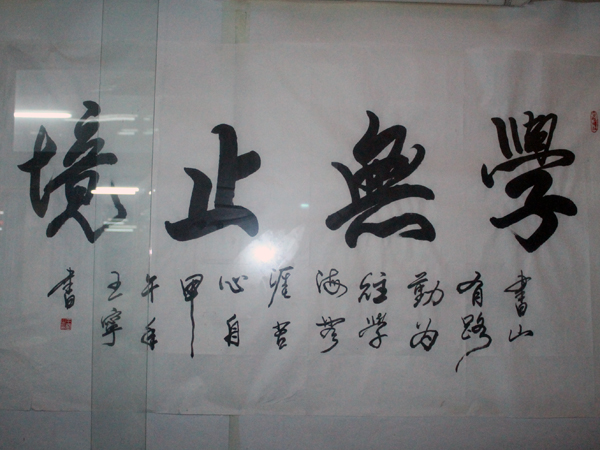 學無止境
書山
有路
勤為
徑學
海無
涯苦
作舟
甲
午年
王寧
書